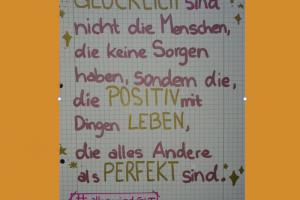 GLÜCKLICH sind
nicht die Menschen,
die keine Sorgen
haben, sondern die,
die POSITIV mit
Dingen LEBEN,
die alles Andere
als PERFEKT sind.